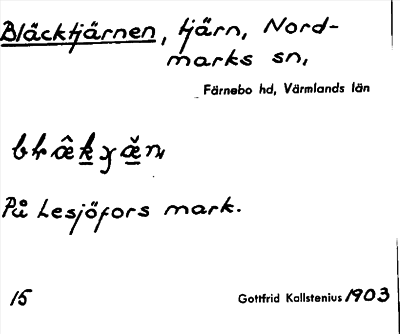 Bläcktjärnen, tjärn, Nord-
marks sn,
Färnebo hd, Värmlands län
På Lesjöfors mark.
15 Gottfrid Kallstenius 1903